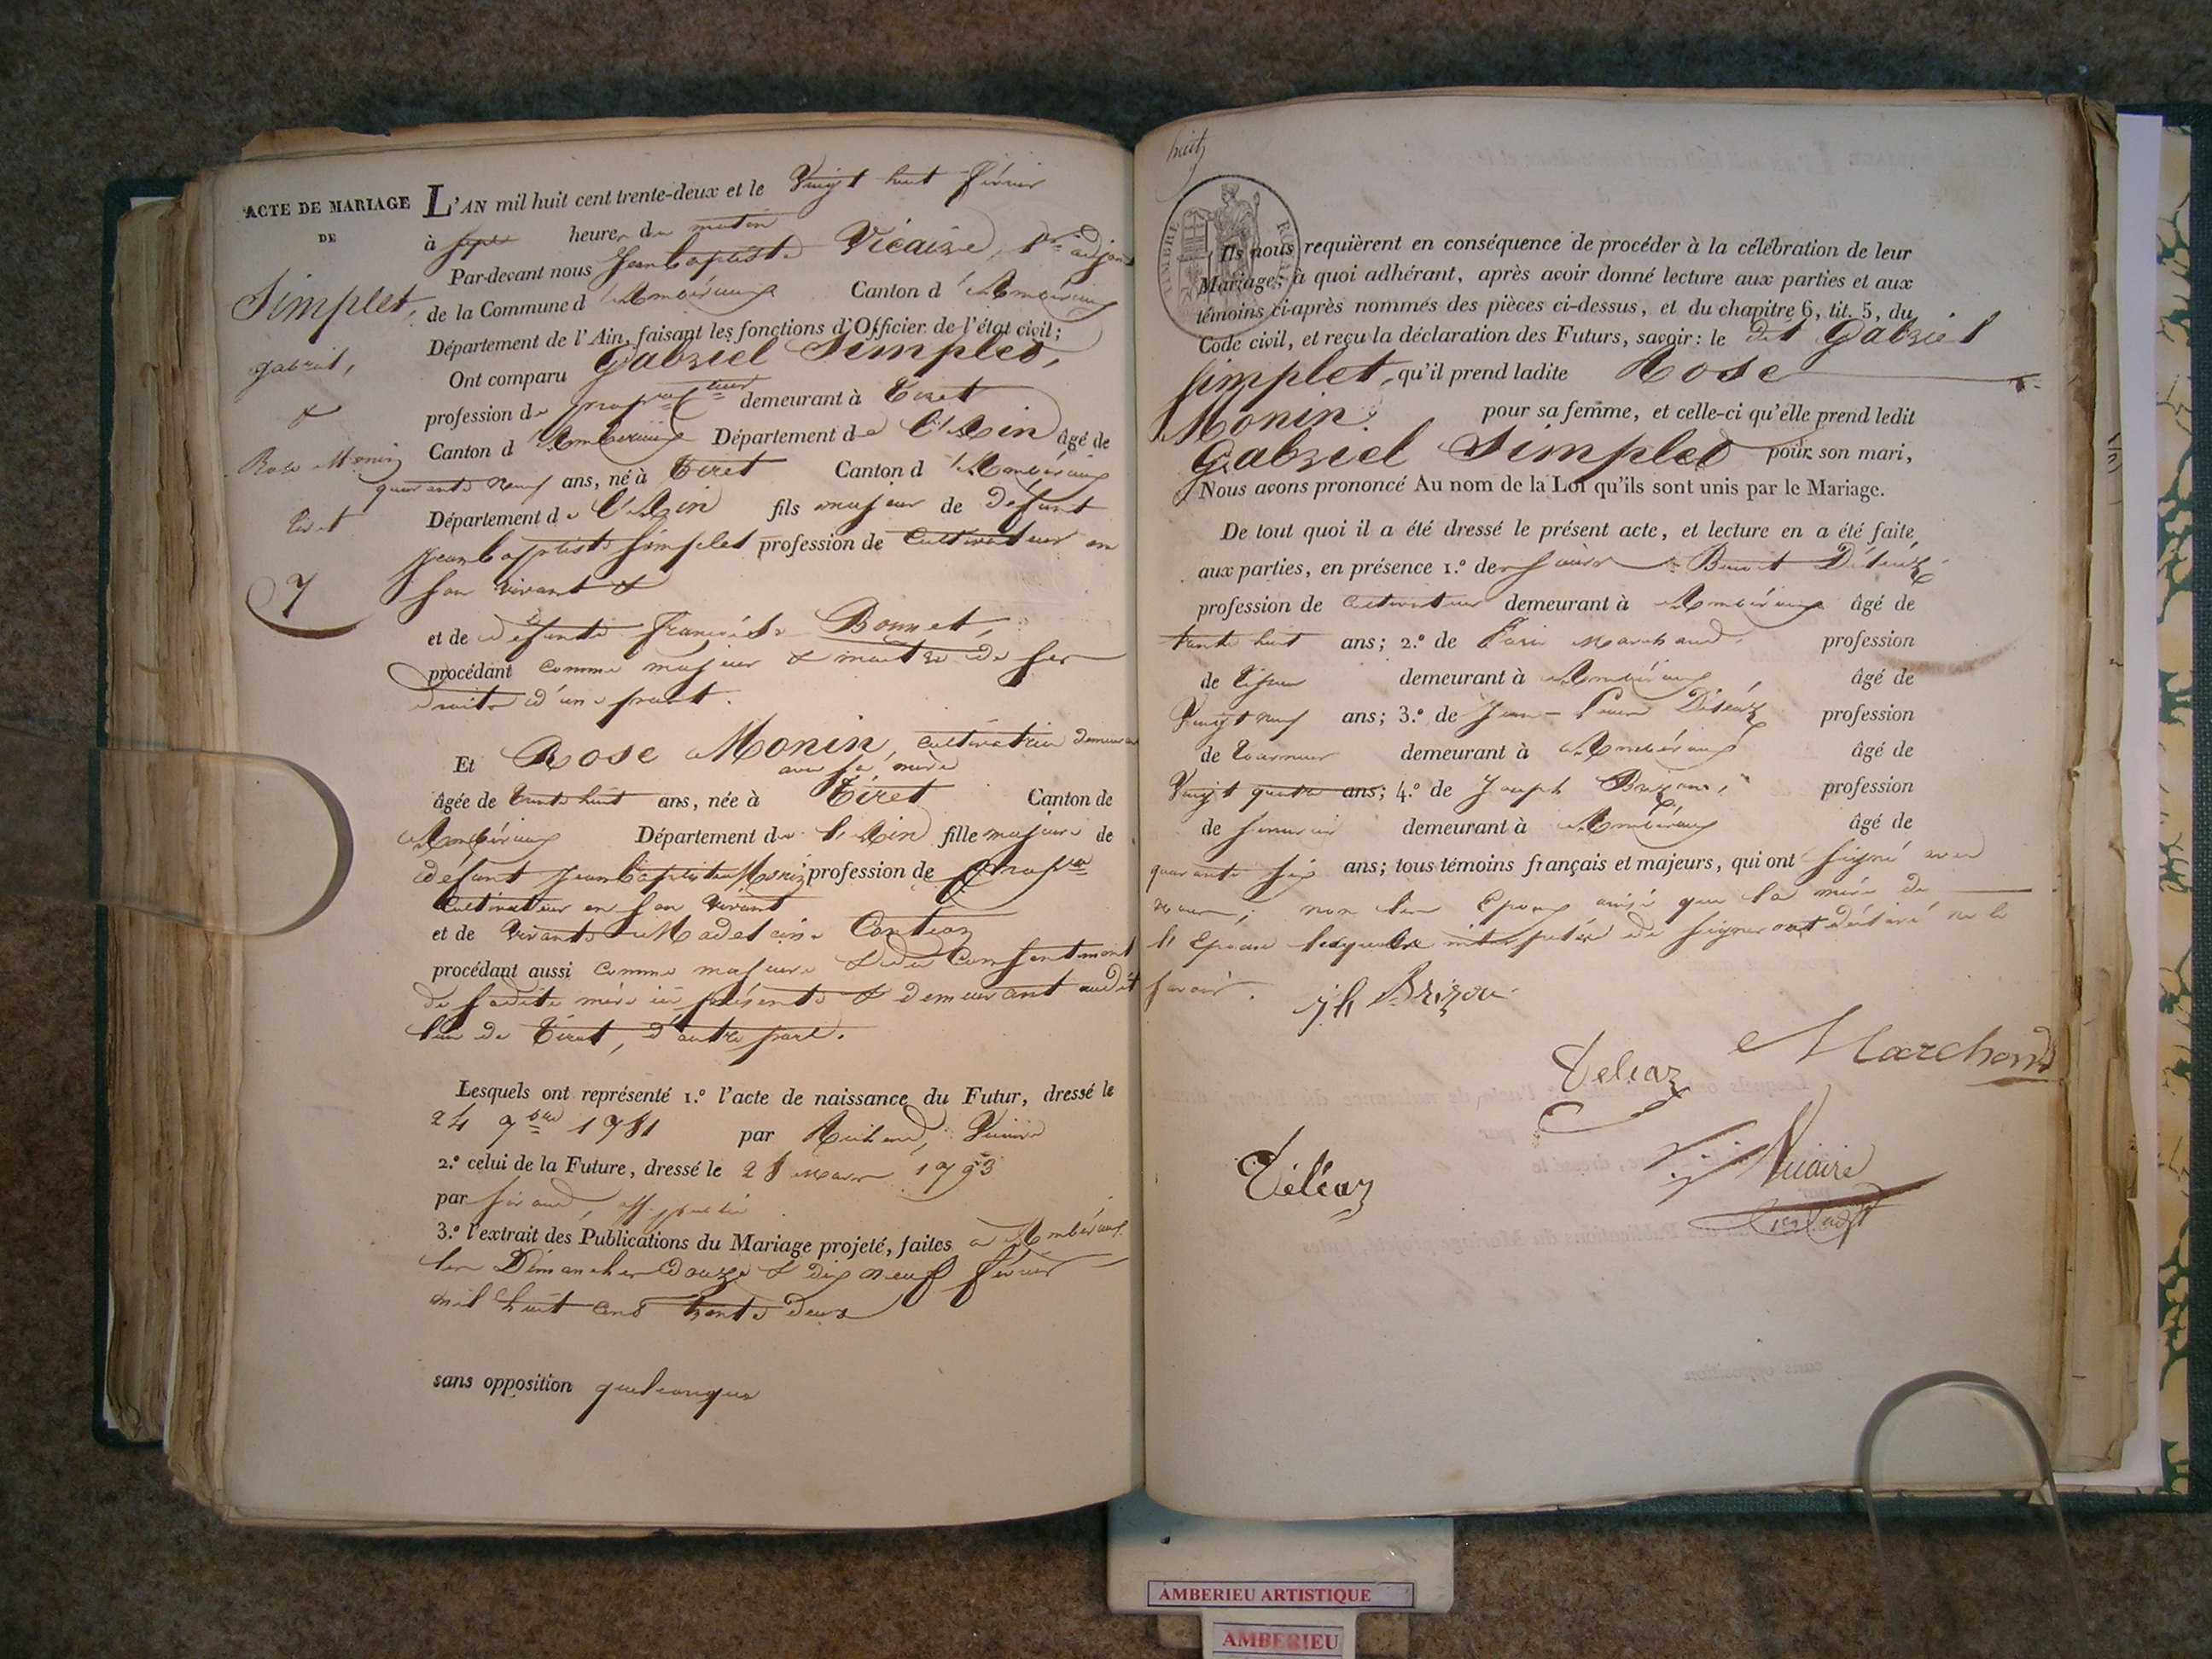 ACTE DE MARIAGE
DE
Simplet,
Gabriel,
&
Rose Monin
Tiret
7
L'AN mil huit cent trente-deux et le Vingt huit février
à sept heures du matin
Par-devant nous Jean Baptiste Vicaire, 1er adjoint
de la Commune d'Ambérieux Canton d'Ambérieux
Département de l'Ain, faisant les fonctions d'Officier de l'état civil;
Ont comparu Gabriel Simplet,
profession de demeurant à Tiret
Canton d'Ambérieux Département de l'Ain âgé de
quarante neuf ans, né à Tiret Canton d'Ambérieux
Département de l'Ain fils majeur de défunt
Jean Baptiste Simplet profession de Cultivateur en
son vivant &
et de défunte Françoise Bonnet,
procédant comme majeur & maître de ses
droits d'une part.
Et Rose Monin, cultivatrice demeurant
avec sa mère
âgée de trente huit ans, née à Tiret Canton de
Ambérieux Département de l'Ain fille majeure de
défunt Jean Baptiste Monin profession de
Cultivateur en son vivant
et de vivante Madelaine
procédant aussi comme majeure & du Consentement
de sadite mère ici présente & demeurant audit
lieu de Tiret, d'autre part.
Lesquels ont représenté 1.º l'acte de naissance du Futur, dressé le
24 1781 par Vicaire
2.º celui de la Future, dressé le 28 mars 1793
par off. public
3.º l'extrait des Publications du Mariage projeté, faites a Ambérieux
les Dimanches douze & dix neuf février
mil huit cent trente deux
sans opposition quelconque
huit
TIMBRE ROYAL
Ils nous requièrent en conséquence de procéder à la célébration de leur
Mariage; à quoi adhérant, après avoir donné lecture aux parties et aux
témoins ci-après nommés des pièces ci-dessus, et du chapitre 6, tit. 5, du
Code civil, et reçu la déclaration des Futurs, savoir: le dit Gabriel
Simplet, qu'il prend ladite Rose
Monin pour sa femme, et celle-ci qu'elle prend ledit
Gabriel Simplet pour son mari,
Nous avons prononcé Au nom de la Loi qu'ils sont unis par le Mariage.
De tout quoi il a été dressé le présent acte, et lecture en a été faite
aux parties, en présence 1.º de sieurs Benoit
profession de Cultivateur demeurant à Ambérieux âgé de
trente huit ans; 2.º de Marchand profession
de demeurant à Ambérieux, âgé de
Vingt neuf ans; 3.º de Jean profession
de tourneur demeurant à Ambérieux âgé de
Vingt quatre ans; 4.º de Joseph profession
de demeurant à Ambérieux âgé de
quarante six ans; tous témoins français et majeurs, qui ont signé avec
nous; non les Epoux ainsi que la mère de
l'Epouse lesquels de signer ont déclaré ne le
savoir.
jh Brizon
Teleaz
Marchand
Téléaz
Vicaire